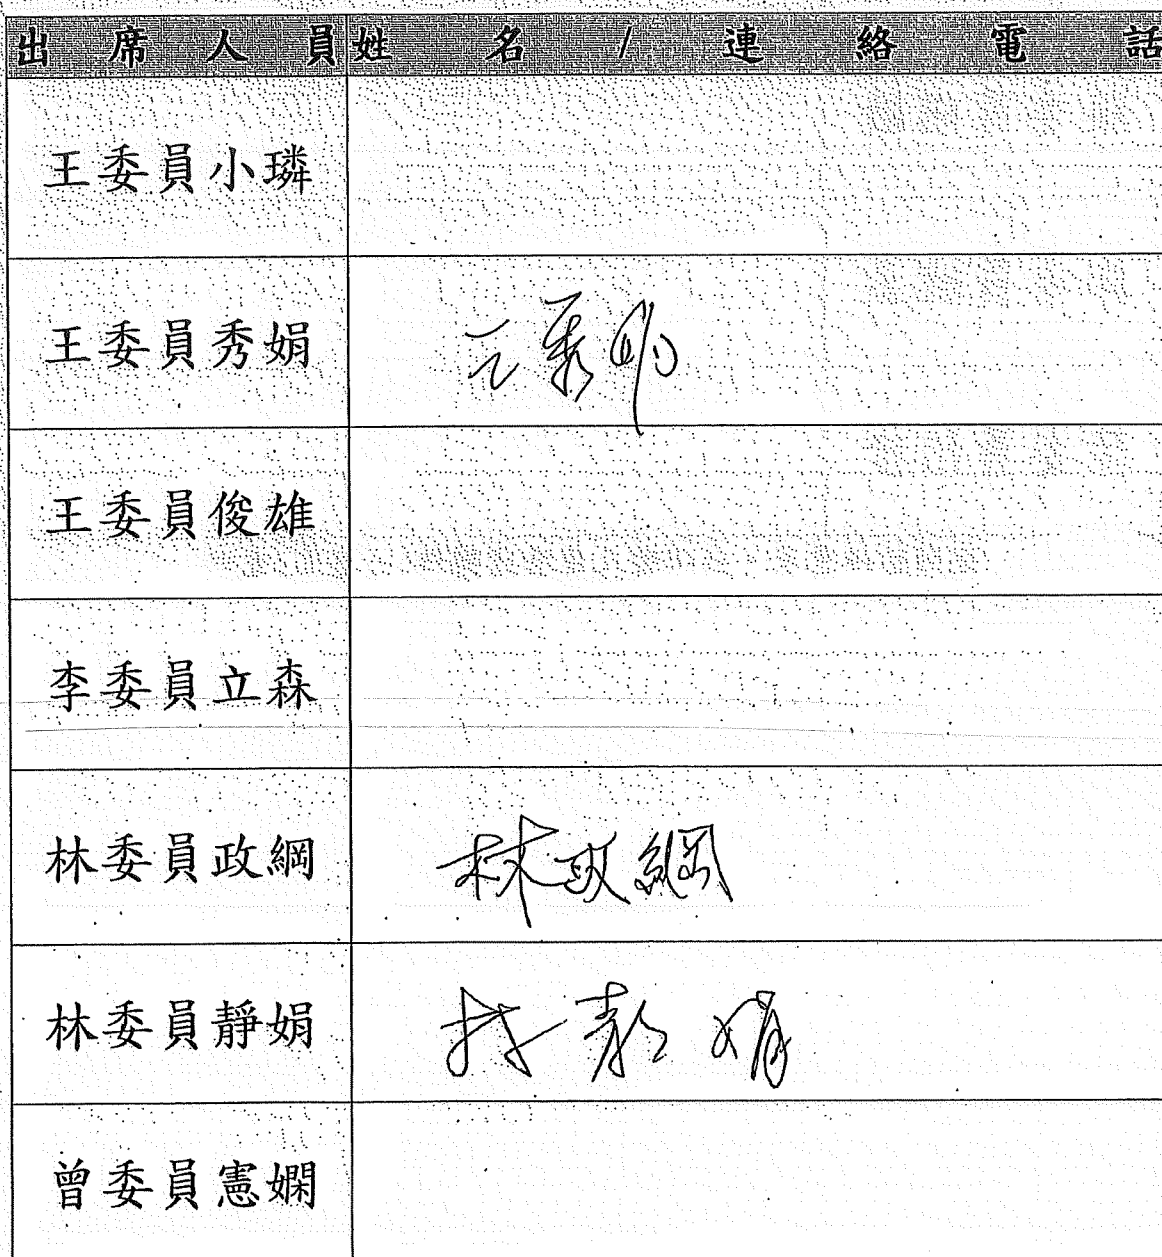 出席人員 姓名/連絡電話
王委員小璘
王委員秀娟 王秀娟
王委員俊雄
李委員立森
林委員政綱 林政綱
林委員靜娟 林靜娟
曾委員憲嫻